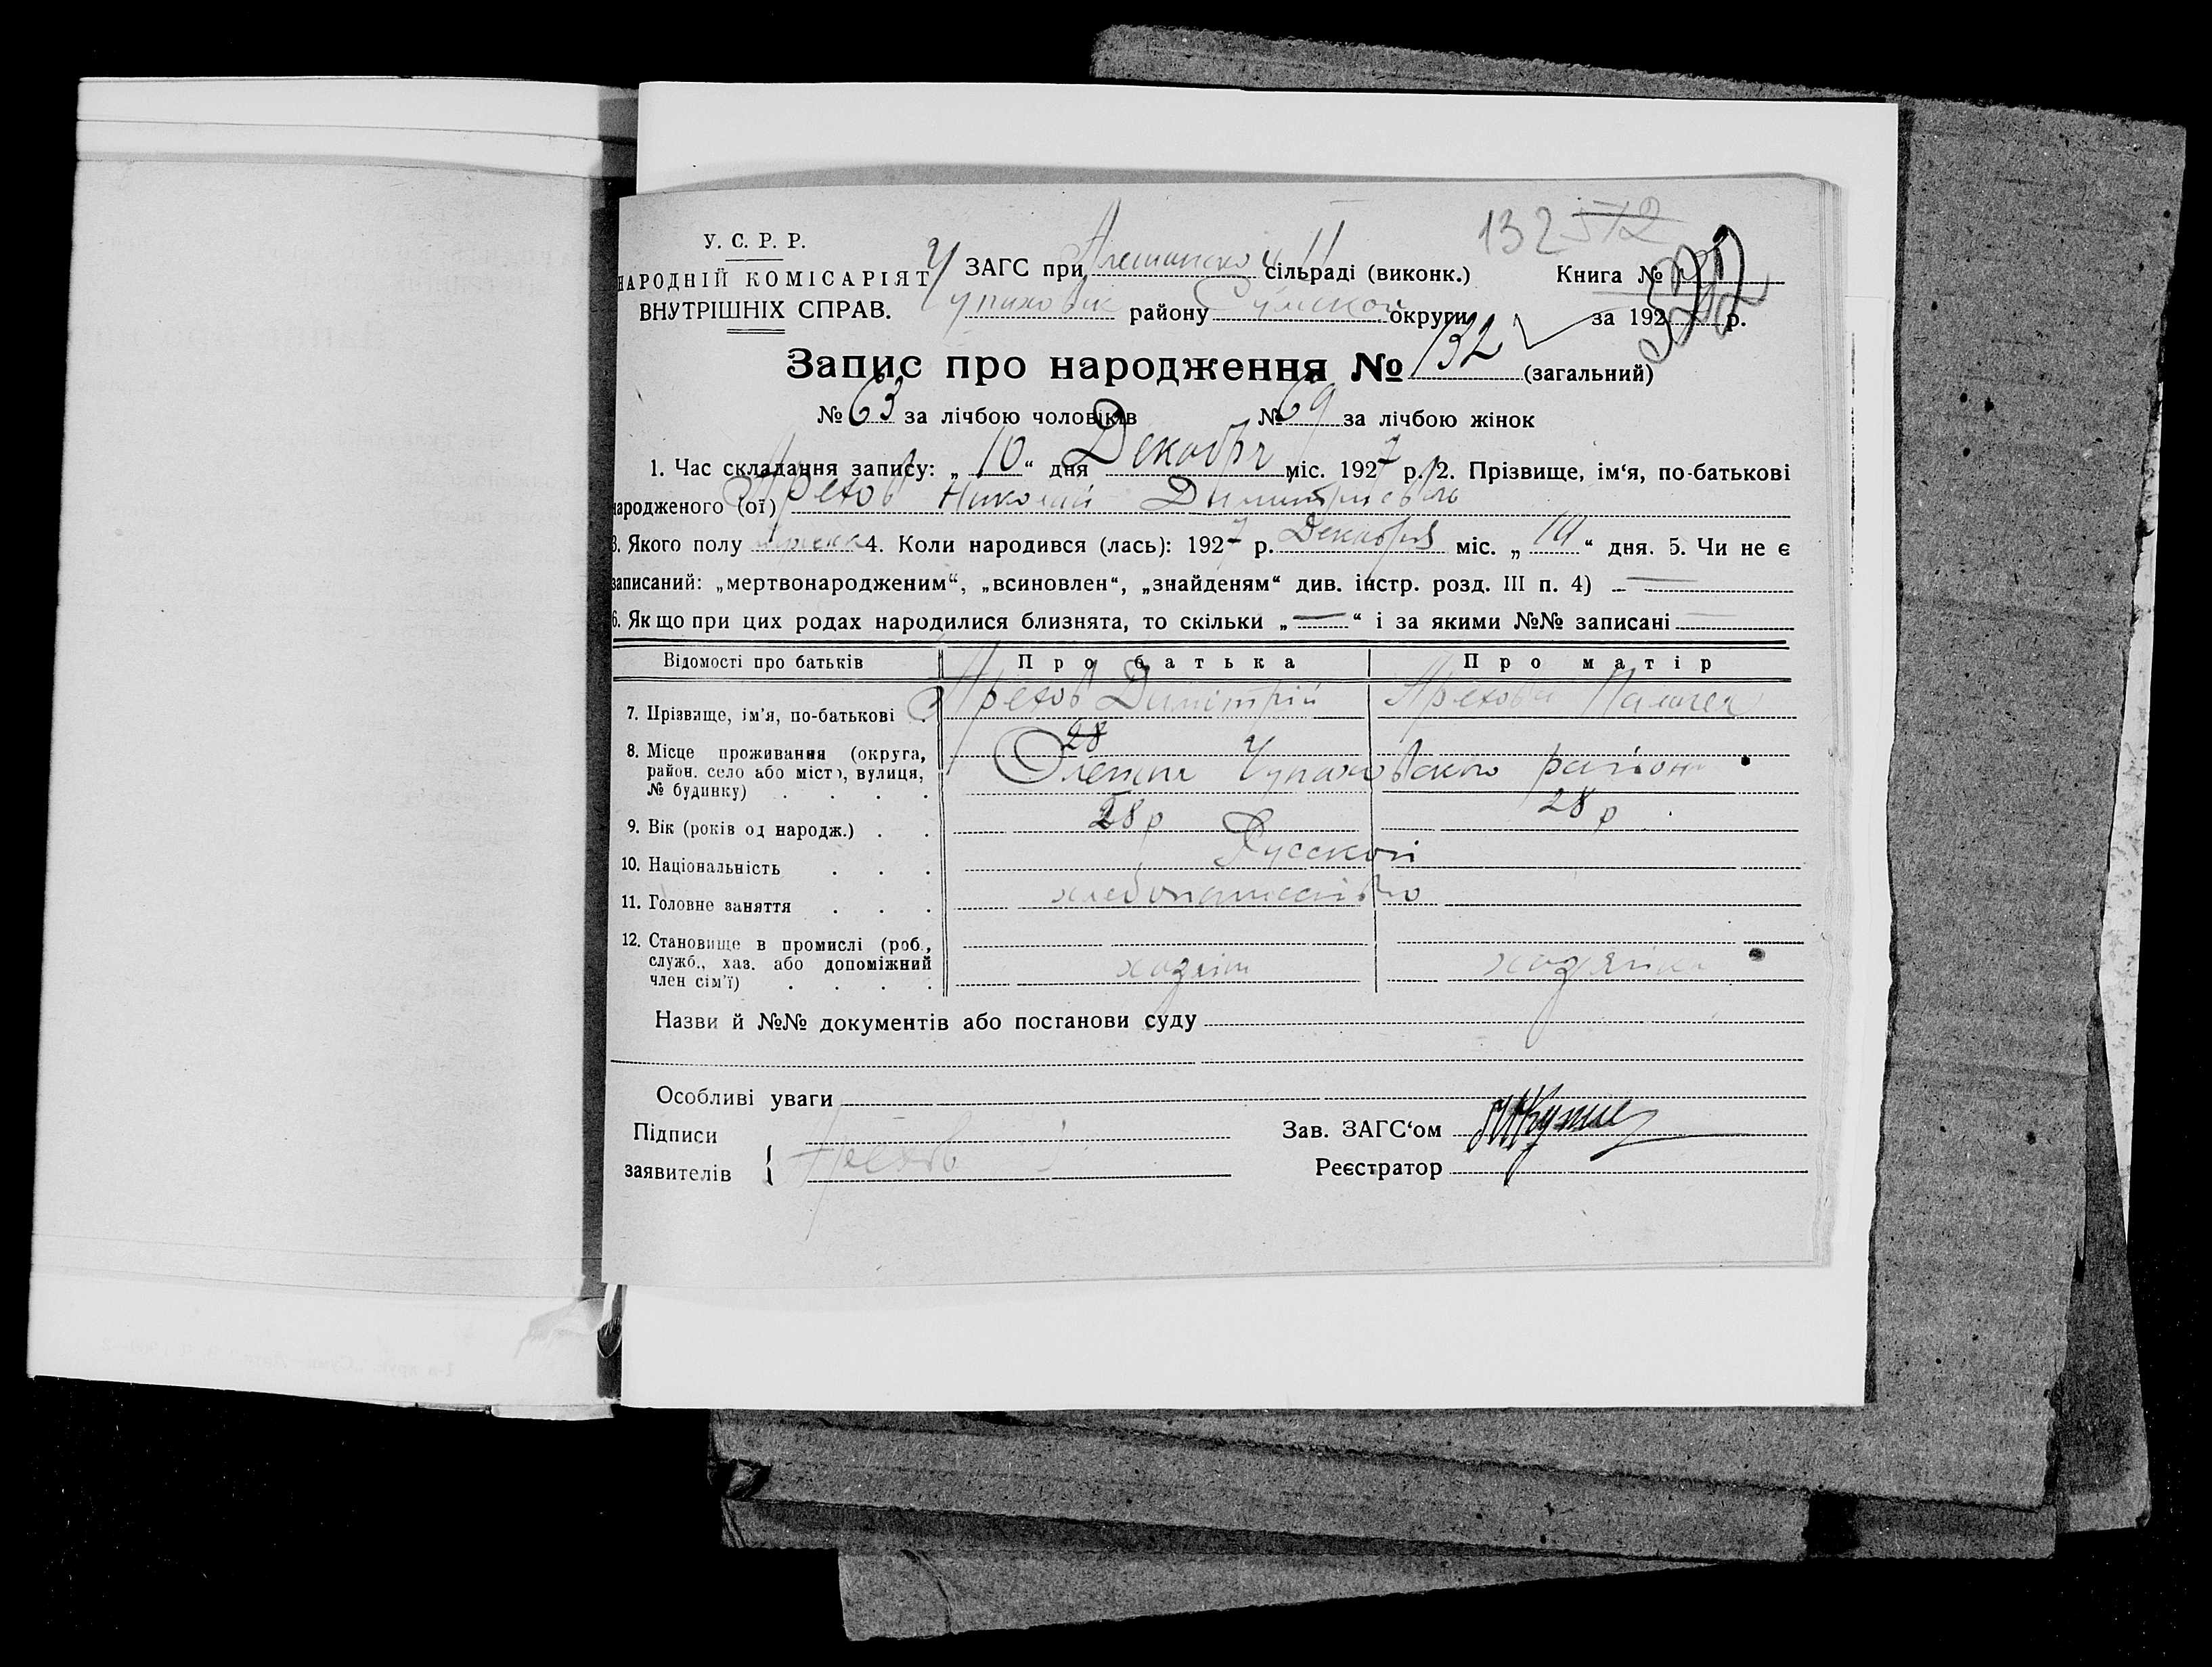 132 572
У. С. Р. Р.
НАРОДНІЙ КОМІСАРІЯТ
ВНУТРІШНІХ СПРАВ.
ЗАГС при сільраді (виконк.)
Книга №
району округи за 192 р.
Запис про народження № 132 (загальний)
№ 63 за лічбою чоловіків № 69 за лічбою жінок
1. Час складання запису: „ 10 “ дня Декабря міс. 1927 р. 2. Прізвище, ім‘я, по-батькові
народженого (ої) Арехов Николай
3. Якого полу 4. Коли народився (лась): 1927 р. Декабря міс. „ “ дня. 5. Чи не є
записаний: „мертвонародженим“, „всиновлен“, „знайденям“ див. інстр. розд. III п. 4) —
6. Якщо при цих родах народилися близнята, то скільки „ — “ і за якими №№ записані —
Відомості про батьків Про батька Про матір
7. Прізвище, ім'я, по-батькові Арехов Димітрій Арехова
28
8. Місце проживання (округа, район. село або місто, вулиця, № будинку) Чупаховского район
9. Вік (років од народж.) 28 р 28 р
10. Національність Русский
11. Головне заняття хлебопашество
12. Становище в промислі (роб., служб., хаз. або допоміжний член сім'ї) хозяин хозяйка
Назви й №№ документів або постанови суду
Особливі уваги
Підписи
заявителів Арехов
Зав. ЗАГС‘ом
Реєстратор